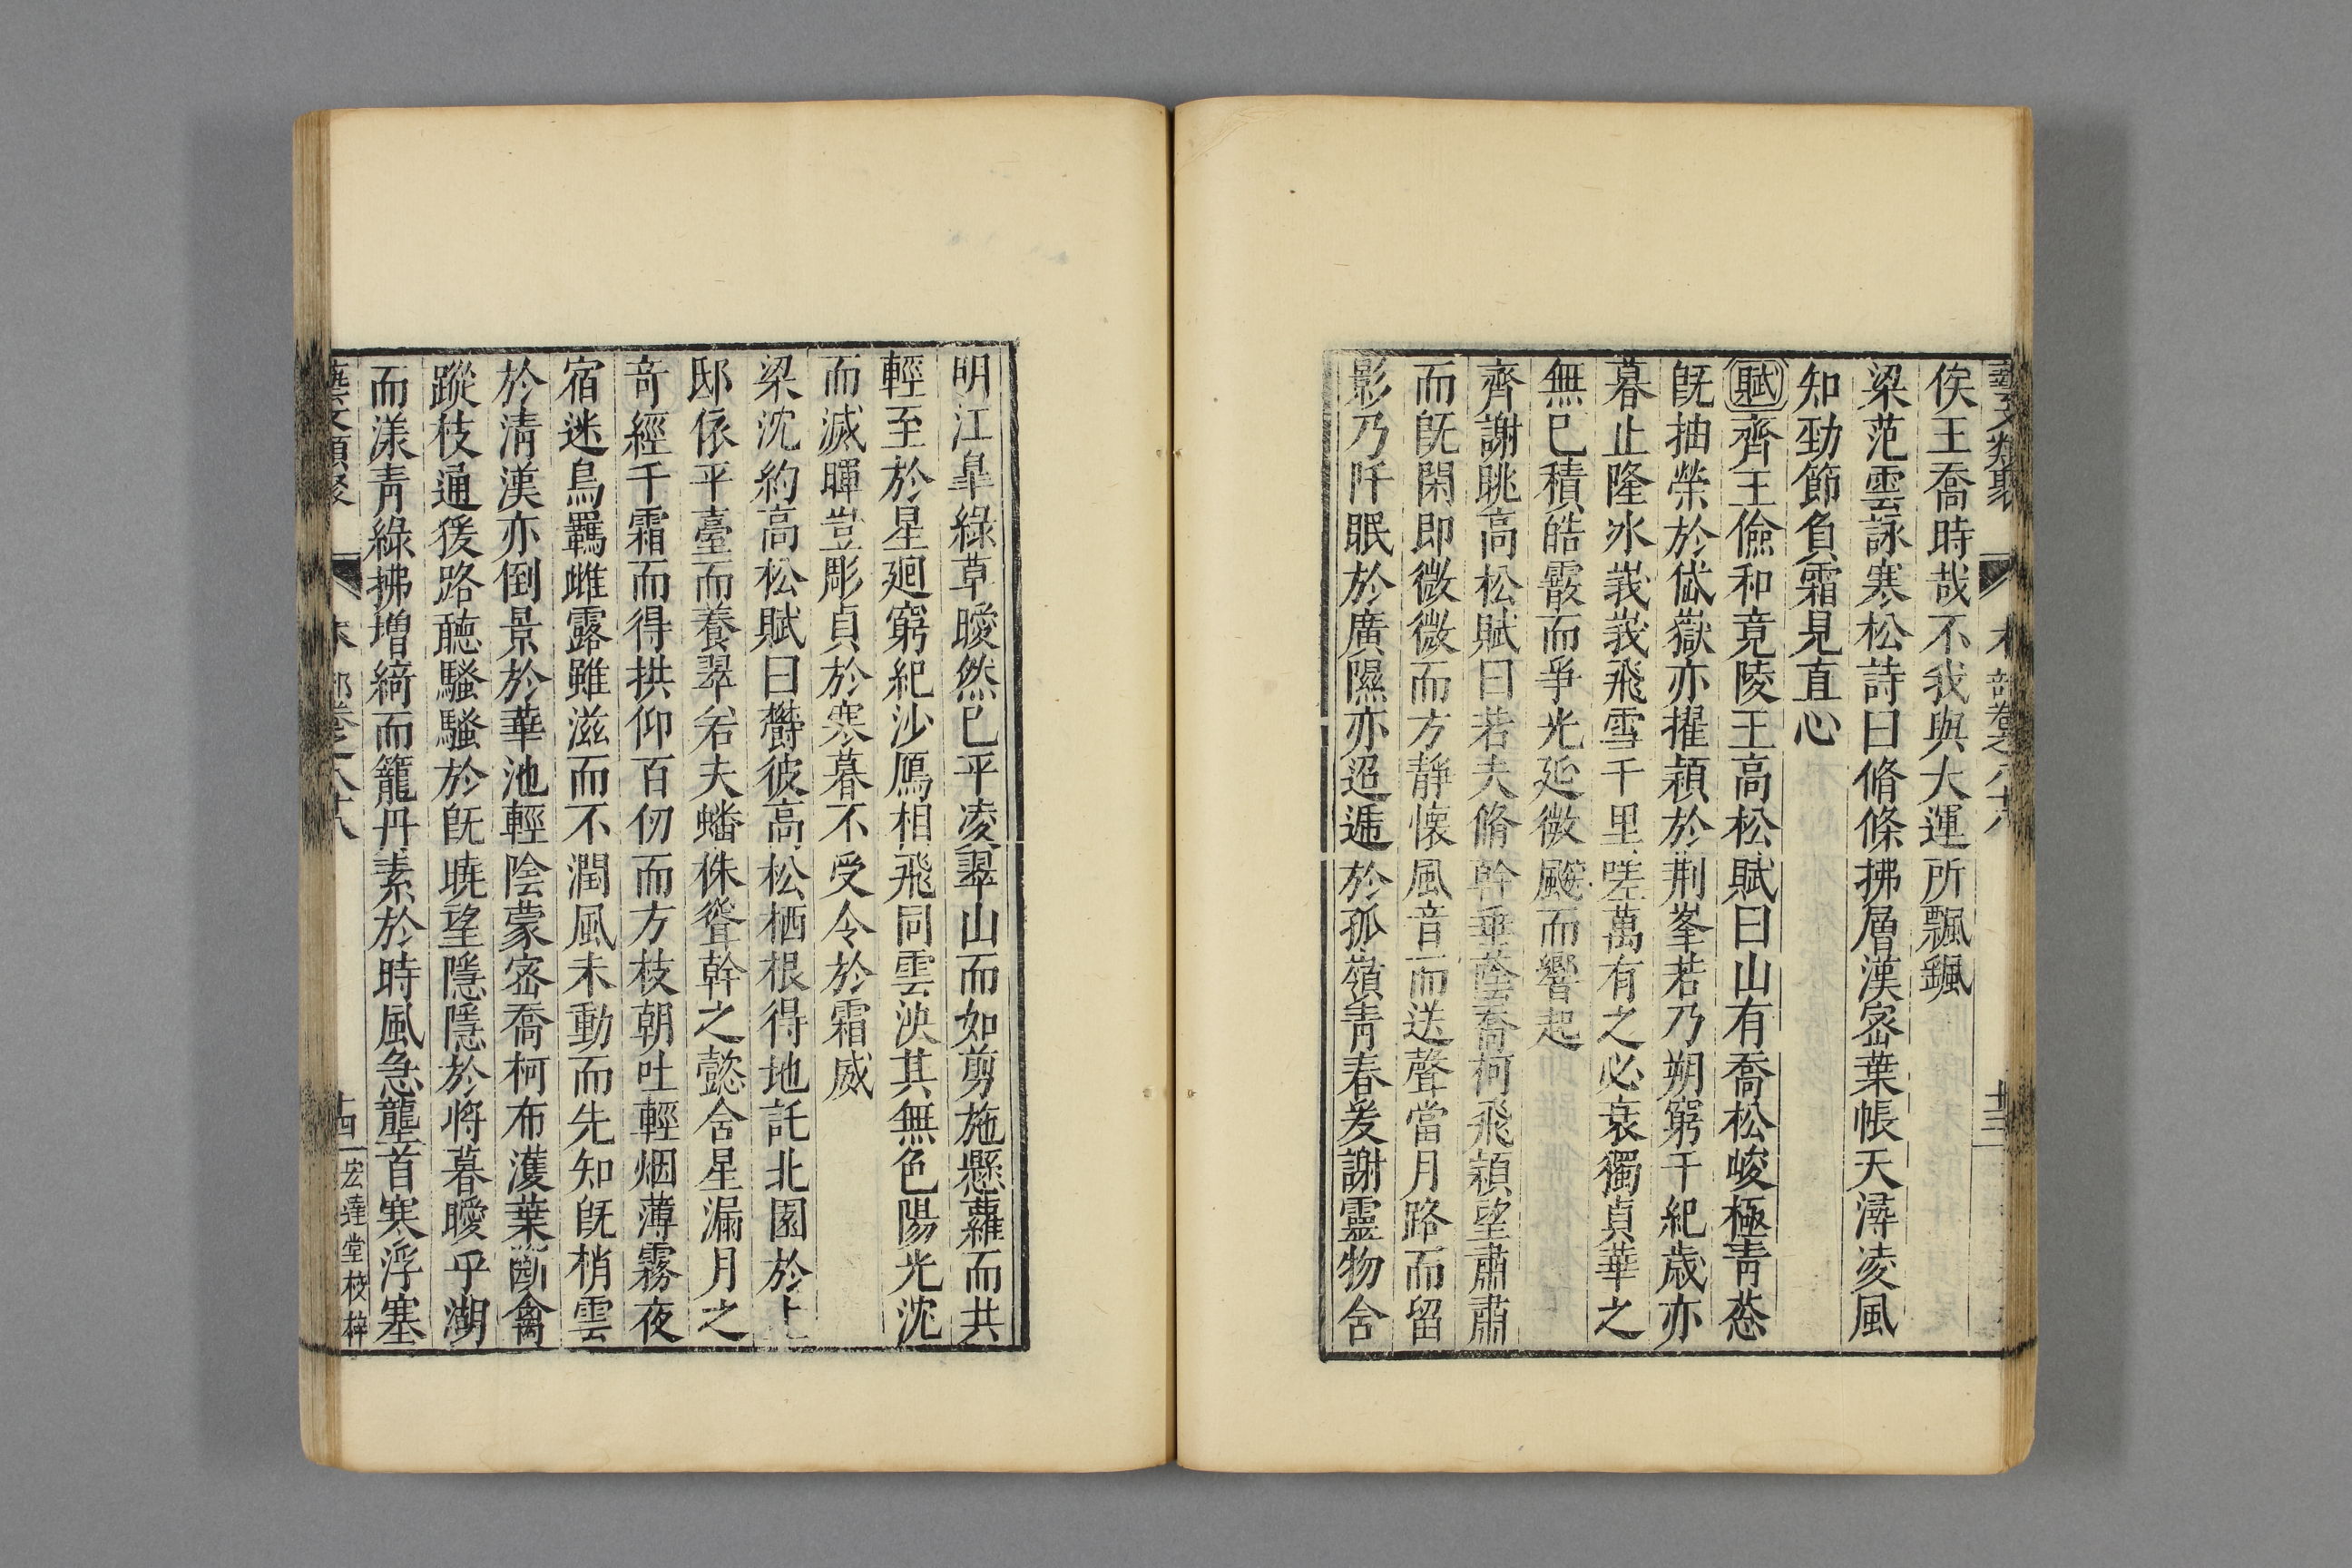 藝文類聚 木部卷之八十八 十三
俟王喬時哉不我與大運所飄颻
梁范雲詠寒松詩曰脩條拂層漢密葉帳天潯凌風
知勁節負霜見直心
賦齊王儉和竟陵王高松賦曰山有喬松峻極青葱
既抽榮於岱嶽亦擢穎於荆峯若乃朔窮于紀歲亦
暮止隆冰峩峩飛雪千里嗟萬有之必衰獨貞華之
無已積皓霰而爭光延微飈而響起
齊謝眺高松賦曰若夫脩幹垂蔭喬柯飛穎望肅肅
而既閑即微微而方靜懷風音而送聲當月路而留
影乃阡眠於廣隰亦迢遞於孤嶺青春爰謝靈物含
明江臯綠草曖然已平凌翠山而如剪施懸蘿而共
輕至於星迴窮紀沙鴈相飛同雲泱其無色陽光沈
而滅暉豈彫貞於寒暮不受令於霜威
梁沈約高松賦曰欝彼高松栖根得地託北園於上
邸依平臺而養翠若夫蟠株聳幹之懿含星漏月之
奇經千霜而得拱仰百仞而方枝朝吐輕烟薄霧夜
宿迷鳥羈雌露雖滋而不潤風未動而先知既梢雲
於清漢亦倒景於華池輕陰蒙密喬柯布濩葉斷禽
蹤枝通猨路聽騷騷於既曉望隱隱於將暮曖乎湖
而漾青綠拂增綺而籠丹素於時風急壟首寒浮塞
藝文類聚 木部卷之八十八 十四 宏達堂校梓